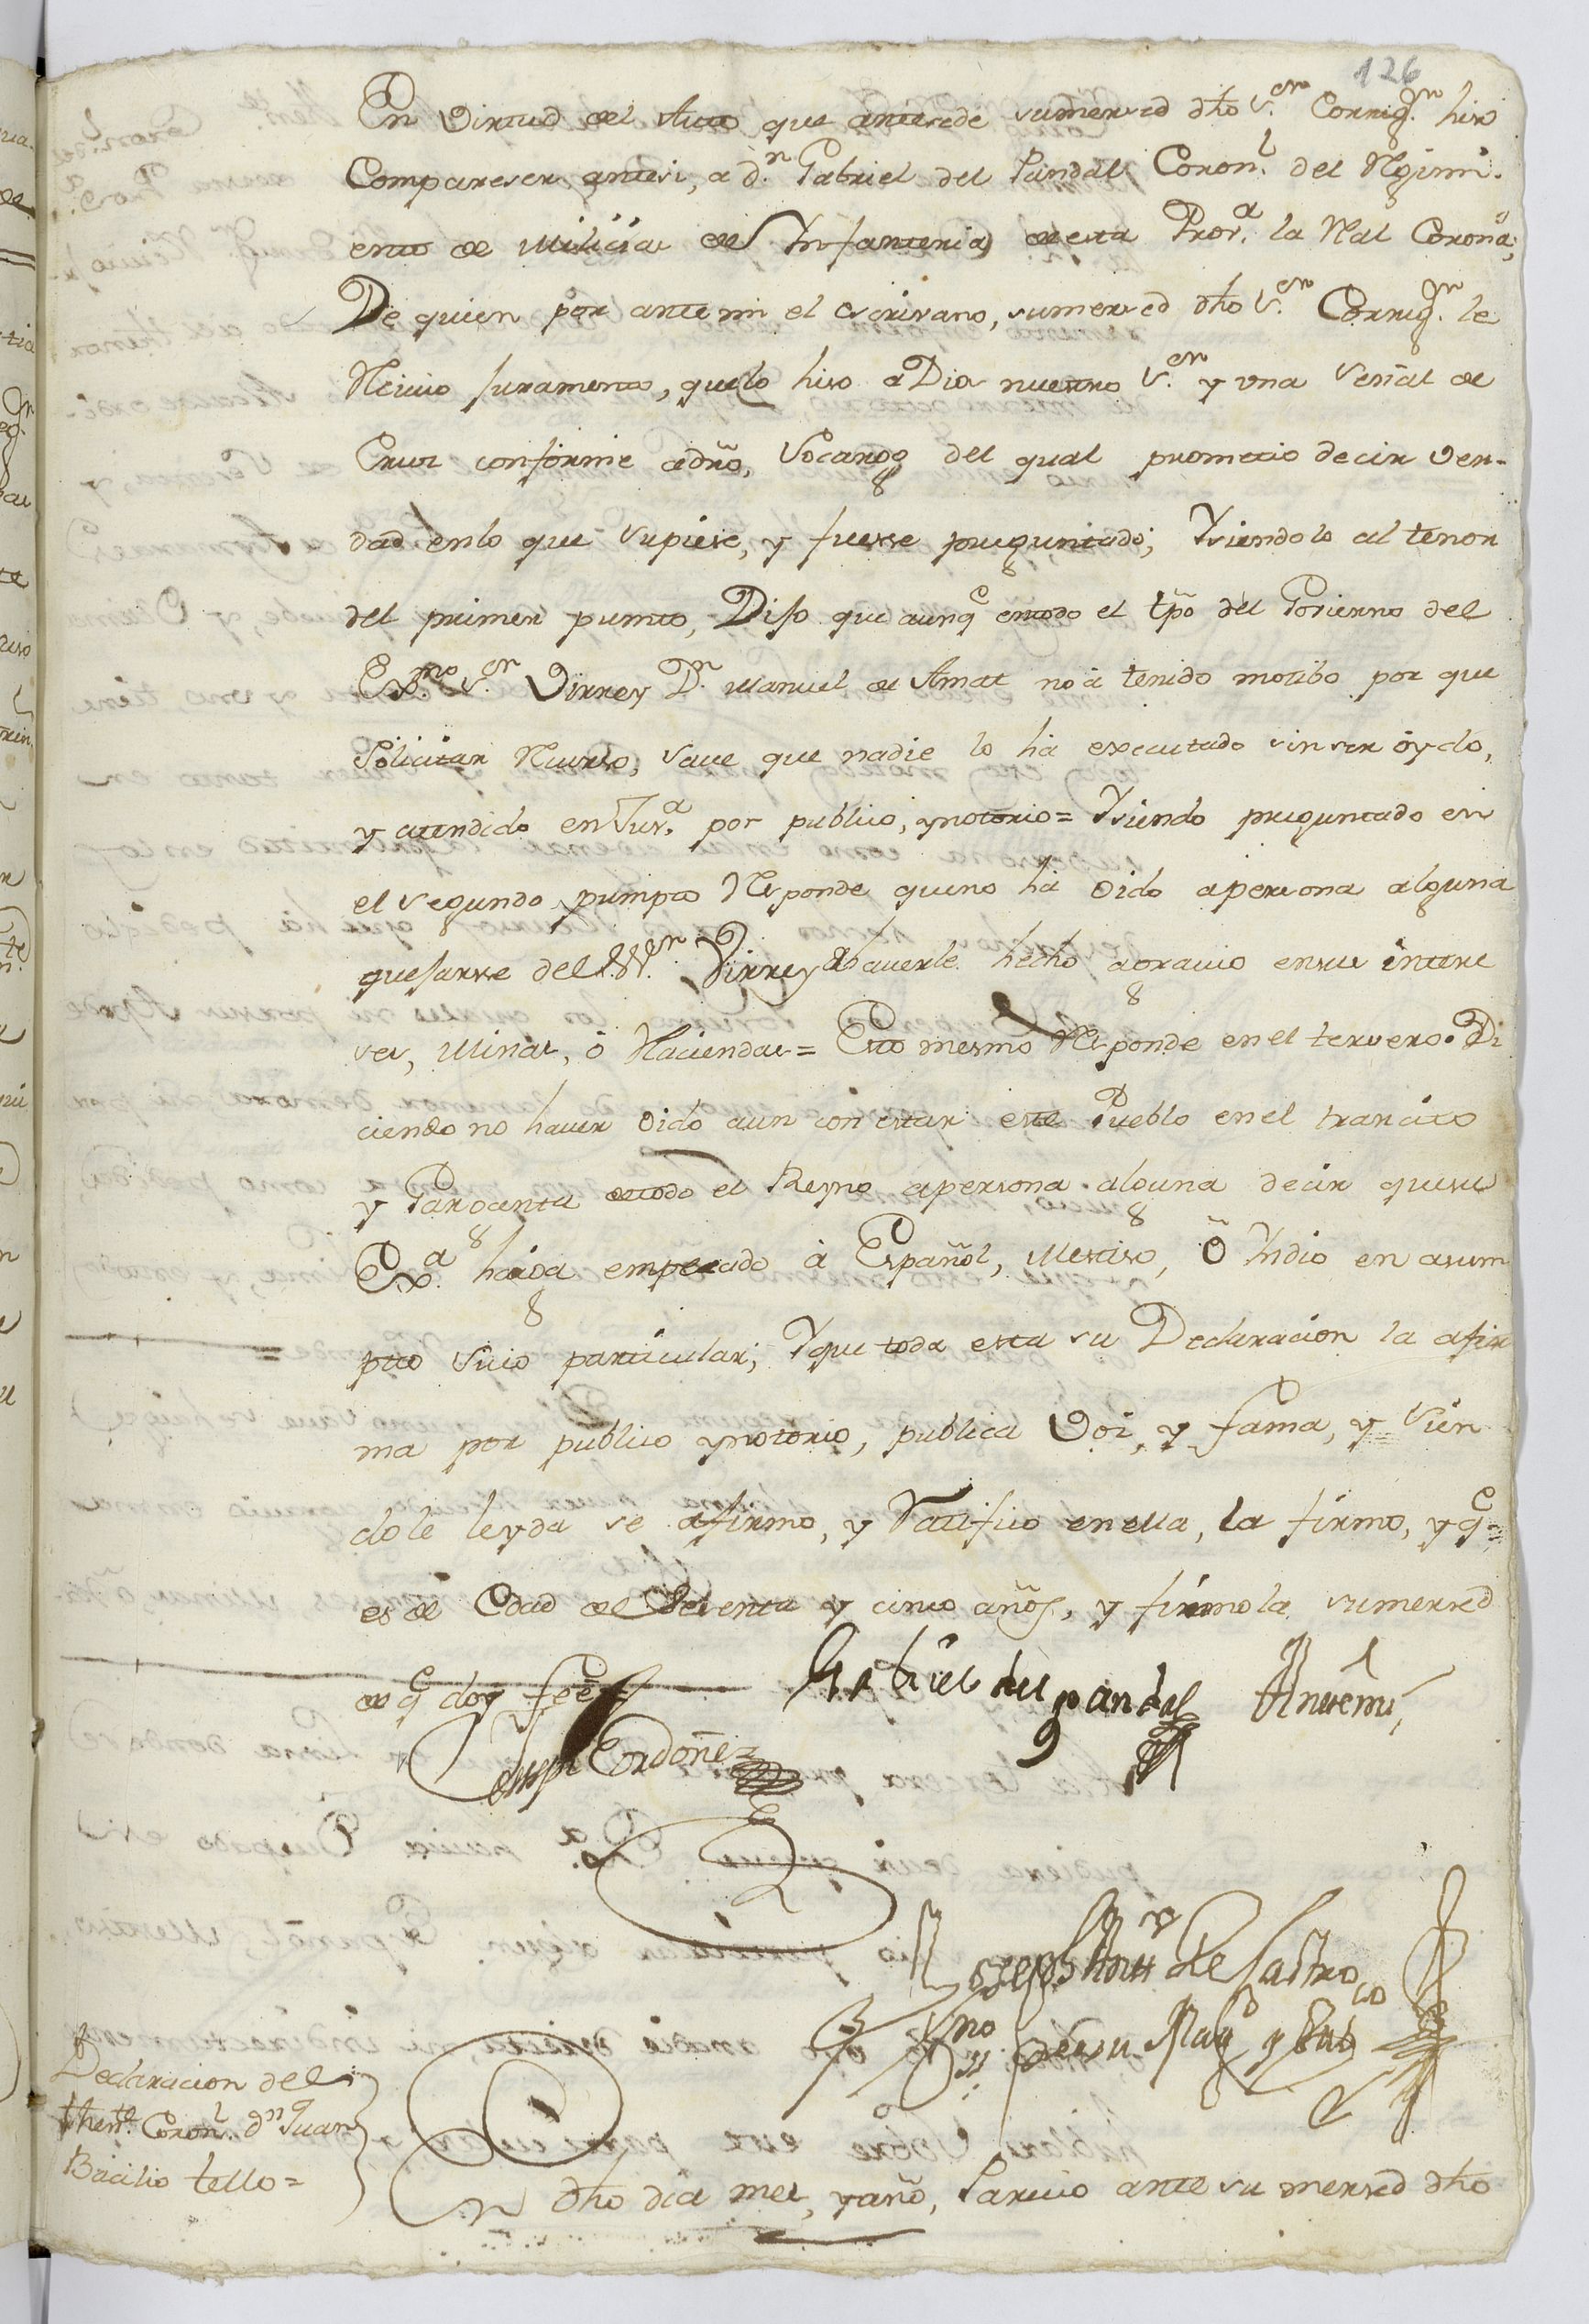 126
En Virtud del Auto que antesede sumersed dho S.or Corrig.or hiso
Compareser antesi, a d.n Gabriel del Pandal Coron.l del Rejimi.
ento de Milicias de Infanteria desta Prov.a la Real Corona;
De quien por ante mi el escrivano, sumersed dho S.or Corrig.or le
Recivio Juramento, quelo hiso a Dios nuestro S.or y una Señal de
Cruz conforme adro, Socargo del qual prometio decir ver-
dad enlo que Supiese, y fuesse preguntado; Ysiendolo al tenor
del primer punto, Dijo que aunq.e entodo el tpo del Govierno del
Ex.mo S.or Virrey D.n Manuel de Amat no á tenido motibo por que
Solicitar Recurso, save que nadie lo ha executado sin ser oydo,
y atendido en Jus.a por publico, ynotorio = Ysiendo preguntado en
el segundo punpto Responde queno há oido apersona alguna
quejarsse del S.or Virrey haverle hecho agravio ensus intere
ses, Minas, ó Haciendas = Esto mesmo Responde en el tersero. Di
ciendo no haver oido aun con estar este Pueblo en el trancito
y Garganta detodo el Reyno apersona alguna decir quesu
Ex.a haiga empleado á Español, Mestiso, Ó Yndio en asum
pto Suio particular; Yque toda esta su Declaracion la afir
ma por publico ynotorio, publica Vos, y fama, y Sien
dole leyda se afirmo, y Ratifico enella, la firmo, yq.e
es de Edad de Setenta y cinco años, y firmola sumersed
de q.e doy feé
Gabriel del pandal Antemi,
Joseph Ordoñez
Joseph Ant.o de Castro
Es.no de su Mag.d y Pub.co
Declaracion del
then.te Coron.l dn Juan
Bacilio tello =
En dho dia mes, yaño, Parecio ante su mersed dho